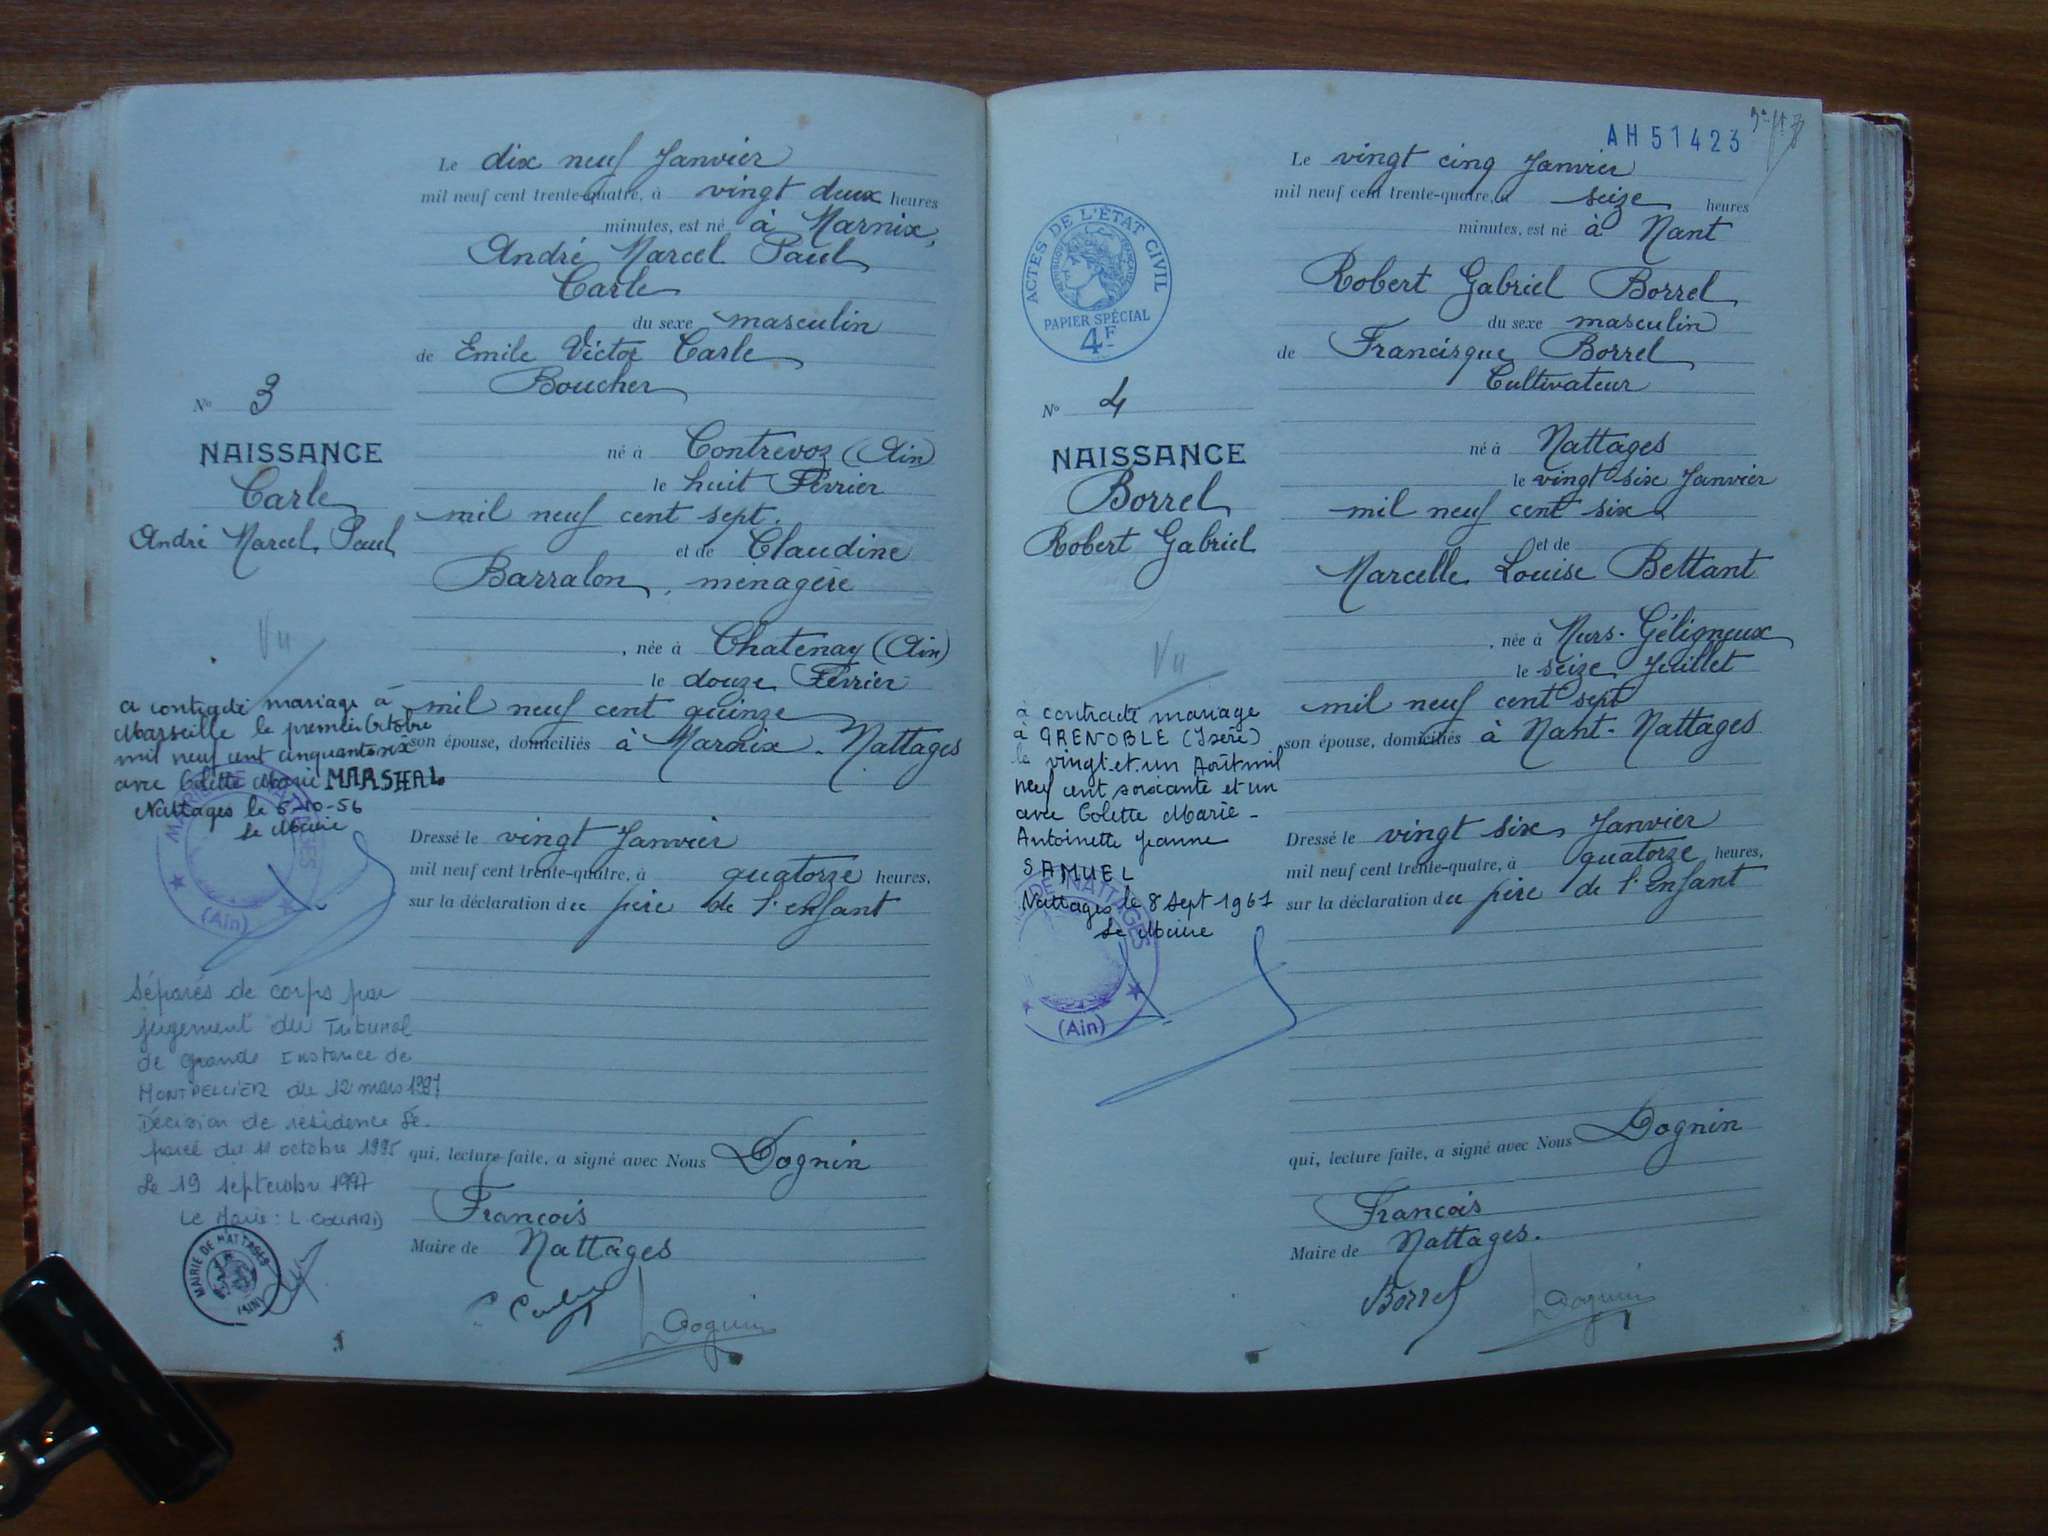 Le dix neuf Janvier
mil neuf cent trente-quatre, à vingt deux heures
minutes, est né à Marnix,
André Marcel Paul
Carle
du sexe masculin
de Emile Victor Carle
Boucher
né à Contrevoz (Ain)
le huit Février
mil neuf cent sept.
et de Claudine
Barralon, ménagère
, née à Chatenay (Ain)
le douze Février
mil neuf cent quinze
son épouse, domiciliés à Marnix - Nattages
Dressé le vingt Janvier
mil neuf cent trente-quatre, à quatorze heures,
sur la déclaration du père de l'enfant
qui, lecture faite, a signé avec Nous Dognin
François
Maire de Nattages
Dognin
N° 3
NAISSANCE
Carle
André Marcel Paul
Vu
a contracté mariage à
Marseille le premier Octobre
mil neuf cent cinquante six
avec Colette Marie MARSHAL
Nattages le 5-10-56
Le Maire
MAIRIE DE NATTAGES
(Ain)
Séparés de corps par
jugement du Tribunal
de Grande Instance de
MONTPELLIER du 12 mars 1997
Décision de résidence sé-
parée du 11 octobre 1995
Le 19 septembre 1997
Le Maire: L
MAIRIE DE NATTAGES
(AIN)
AH51423
Le vingt cinq Janvier
mil neuf cent trente-quatre, à seize heures
minutes, est né à Nant
Robert Gabriel Borrel
du sexe masculin
de Francisque Borrel
Cultivateur
né à Nattages
le vingt six Janvier
mil neuf cent six
et de
Marcelle Louise Bettant
, née à Murs-Géligneux
le seize Juillet
mil neuf cent sept
son épouse, domiciliés à Nant - Nattages
Dressé le vingt six Janvier
mil neuf cent trente-quatre, à quatorze heures,
sur la déclaration du père de l'enfant
qui, lecture faite, a signé avec Nous Dognin
François
Maire de Nattages.
Borrel
Dognin
ACTES DE L'ÉTAT CIVIL
RÉPUBLIQUE FRANÇAISE
PAPIER SPÉCIAL
4F
N° 4
NAISSANCE
Borrel
Robert Gabriel
Vu
a contracté mariage
à GRENOBLE (Isère)
le vingt et un Août mil
neuf cent soixante et un
avec Colette Marie -
Antoinette Jeanne
SAMUEL
Nattages le 8 Sept 1961
Le Maire
DE NATTAGES
(Ain)